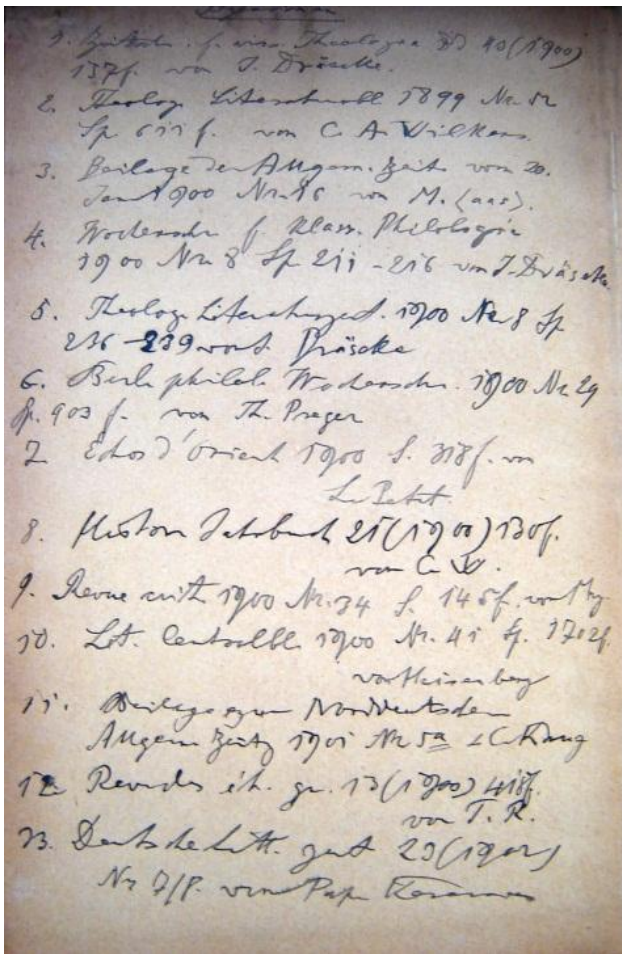 1. Zeitschr. f. wiss. Theologie Bd 40 (1900)
137f. von J. Dräseke.
2. Theolog. Literaturbl 1899 Nr. 52
Sp 611 f. von C. A. Wilkens.
3. Beilage der Allgem. Zeit. vom 20.
Jan 1900 Nr. 16 von M. (aas).
4. Wochenschr f. klass. Philologie
1900 Nr. 8 Sp 211-216 von J. Dräseke
5. Theolog. Literaturzeit. 1900 Nr 8 Sp
236-239 von J. Dräseke
6. Berl. philol. Wochenschr. 1900 Nr 29
Sp. 903 f. von Th. Preger
7. Echos d'Orient 1900 S. 318f. von
L. Petit.
8. Histor. Jahrbuch 21 (1900) 130f.
von C. W.
9. Revue crit. 1900 Nr. 34 S. 145f. von
10. Lit. Centralbl. 1900 Nr. 41 Sp. 1702f.
von Heisenberg
11. Beilage zur Norddeutschen
Allgem. Zeitg 1901 Nr 5a
12. Revue des ét. gr. 13 (1900) 418f.
von T. R.
13. Deutsche Litt. zeit 23 (1902)
Nr 7/8. von Pap.